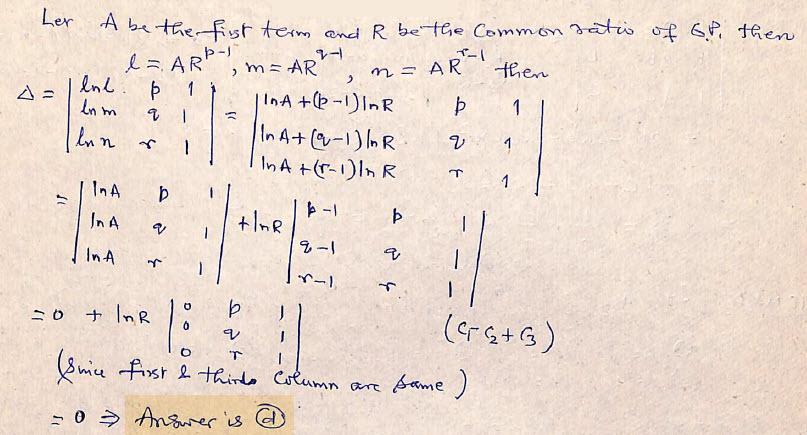 Let A be the first term and R be the Common ratio of G.P. then
l = AR^{p-1}, m = AR^{q-1}, n = AR^{r-1} then
Δ = | ln l p 1 | = | ln A + (p-1) ln R p 1 |
| ln m q 1 | | ln A + (q-1) ln R q 1 |
| ln n r 1 | | ln A + (r-1) ln R r 1 |
= | ln A p 1 | + ln R | p-1 p 1 |
| ln A q 1 | | q-1 q 1 |
| ln A r 1 | | r-1 r 1 |
= 0 + ln R | 0 p 1 | (C1-C2+C3)
| 0 q 1 |
| 0 r 1 |
(Since first & third column are same)
= 0 ⇒ Answer is (d)